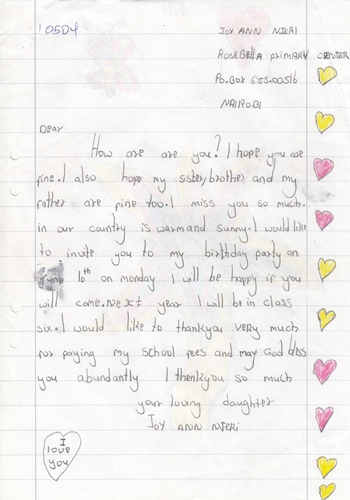 10504
Joy ANN NJERI
ROSEBELLA PRIMARY CENTER
Po.Box 653.00516
NAIROBI
Dear
How are are you? I hope you are
fine. I also hope my sister, brother, and my
father are fine too. I miss you so much.
in our country is warm and sunny. I would like
to invite you to my birthday party on
10th on monday I will be happy if you
will come. Next year I will be in class
six. I would like to thankyou very much
for paying my school fees and may God bless
you abundantly I thenkyou so much
your loving daughter
Joy ANN NJERI
I
love
you